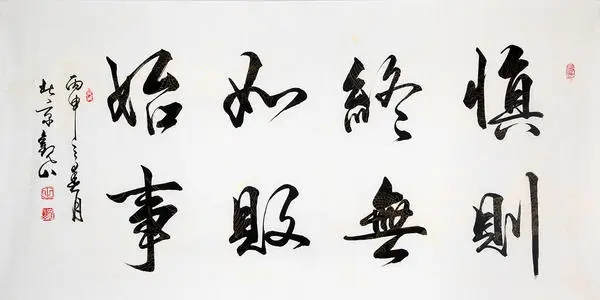 慎終如始
則無敗事
丙申之春月
北京